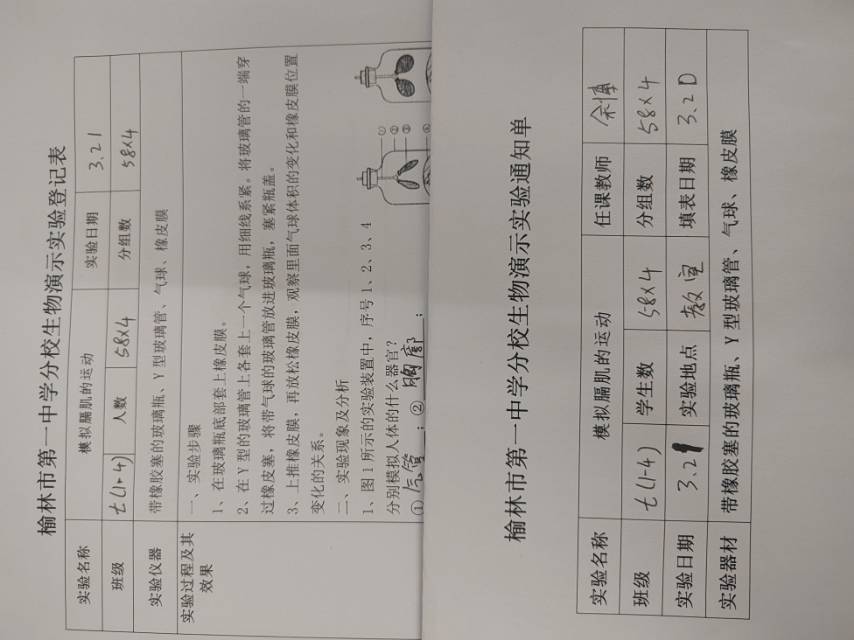 榆林市第一中学分校生物演示实验登记表
实验名称 模拟膈肌的运动 实验日期 3.21
班级 七(1-4) 人数 58×4 分组数 58×4
实验仪器 带橡胶塞的玻璃瓶、Y型玻璃管、气球、橡皮膜
实验过程及其效果
一、实验步骤
1、在玻璃瓶底部套上橡皮膜。
2、在Y型的玻璃管上各套上一个气球，用细线系紧。将玻璃管的一端穿
过橡皮塞，将带气球的玻璃管放进玻璃瓶，塞紧瓶盖。
3、上推橡皮膜，再放松橡皮膜，观察里面气球体积的变化和橡皮膜位置
变化的关系。
二、实验现象及分析
1、图1所示的实验装置中，序号1、2、3、4
分别模拟人体的什么器官？
①气管；②胸廓；
① ② ③ ④
榆林市第一中学分校生物演示实验通知单
实验名称 模拟膈肌的运动 任课教师
班级 七(1-4) 学生数 58×4 分组数 58×4
实验日期 3.21 实验地点 教室 填表日期 3.20
实验器材 带橡胶塞的玻璃瓶、Y型玻璃管、气球、橡皮膜